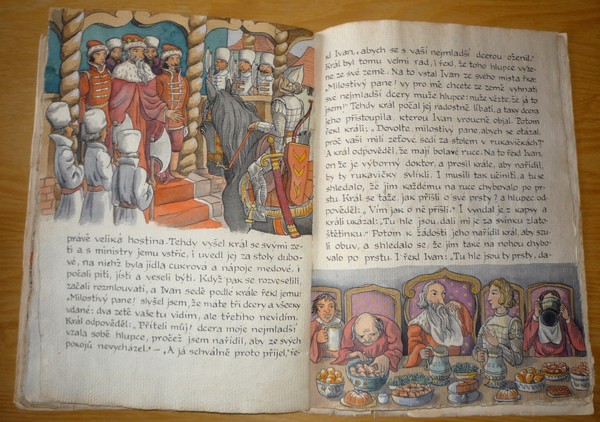 právě veliká hostina. Tehdy vyšel král se svými ze-
ti a s ministry jemu vstříc, i uvedl jej za stoly dubo-
vé, na nichž byla jídla cukrová a nápoje medové, i
počali píti, jísti a veseli býti. Když pak se rozveselili,
začali rozmlouvati, a Ivan sedě podle krále řekl jemu:
"Milostivý pane! slyšel jsem, že máte tři dcery a všecky
vdané: dva zetě vaše tu vidím, ale třetího nevidím.
Král odpověděl: "Příteli můj! dcera moje nejmladší
vzala sobě hlupce, pročež jsem nařídil, aby ze svých
pokojů nevycházel." – "A já schválně proto přijel," ře-
kl Ivan, "abych se s vaší nejmladší dcerou oženil."
Král byl tomu velmi rád, i řekl, že toho hlupce vyže-
ne ze své země. Na to vstal Ivan ze svého místa řka:
"Milostivý pane! vy pro mě chcete ze země vyhnati
své nejmladší dcery muže hlupce: nuže vězte, že já to
jsem!" Tehdy král počal jej radostně líbati, a taky dcera
jeho přistoupila, kterou Ivan vroucně objal. Potom
řekl králi: "Dovolte, milostivý pane, abych se otázal,
proč vaši milí zeťové sedí za stolem v rukavičkách?"
A král odpověděl, že mají bolavé ruce. Na to řekl Ivan,
on že je výborný doktor, a prosil krále, aby nařídil,
by ty rukavičky svlikli. I musili tak učiniti, a tu se
shledalo, že jim každému na ruce chybovalo po pr-
stu. Král se táže, jak přišli o své prsty? a hlupec od-
pověděl: "Vím jak o ně přišli." I vyndal je z kapsy a
králi ukázal: "Tu hle jsou, dali mi je za svinku zlato-
štětinku." Potom k žádosti jeho nařídil král, aby se
zuli obuv, a shledalo se, že jim také na nohou chybo-
valo po prstu. I řekl Ivan: "Tu hle jsou ty prsty, da-